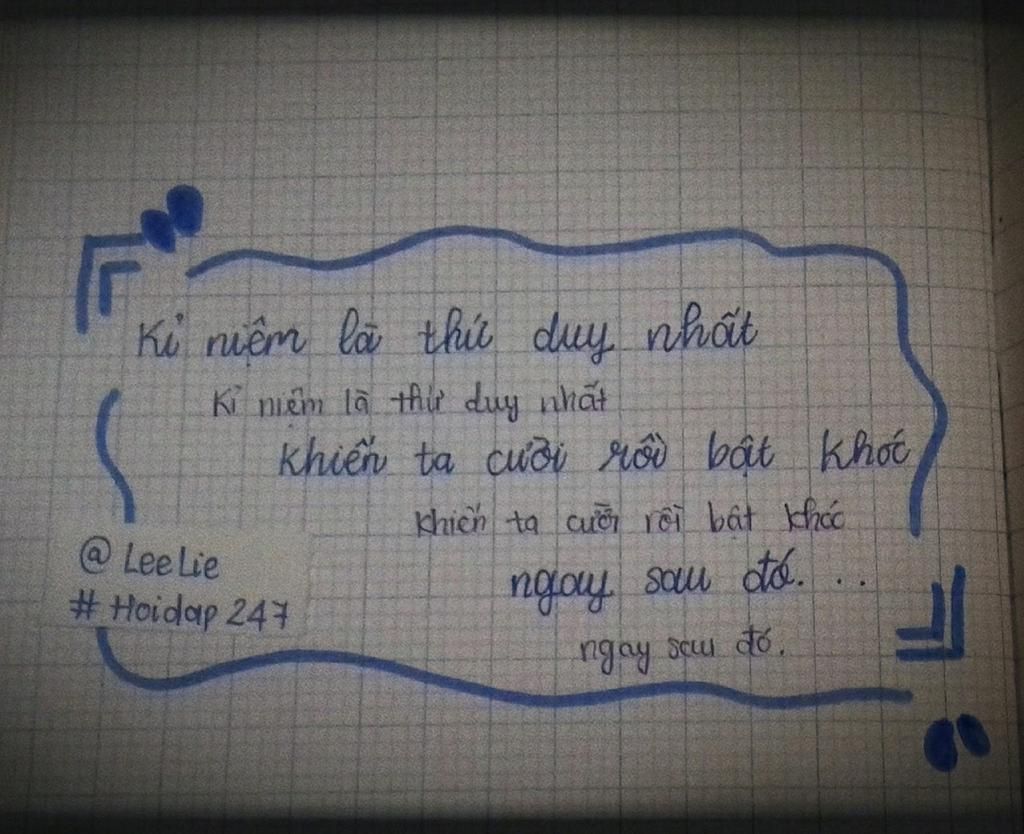 Kỉ niệm là thứ duy nhất
Kỉ niệm là thứ duy nhất
khiến ta cười rồi bật khóc
khiến ta cười rồi bật khóc
ngay sau đó...
ngay sau đó.
@ LeeLie
# Hoidap 247